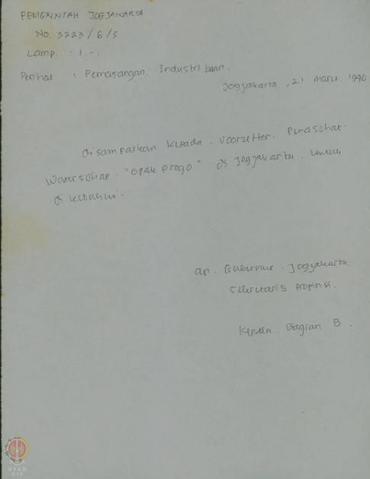 PEMERINTAH JOGJAKARTA
No. 3223/6/3
Lamp. : 1 -.
Perihal : Pemasangan Industri
Jogyakarta, 21 Maret 19
disampaikan kepada Voorzitter
Waterschap "Opak Progo" di Jogjakarta untuk
di ketahui.
an. Gubernur Jogyakarta
Sekretaris Propinsi.
Kepala Bagian B.